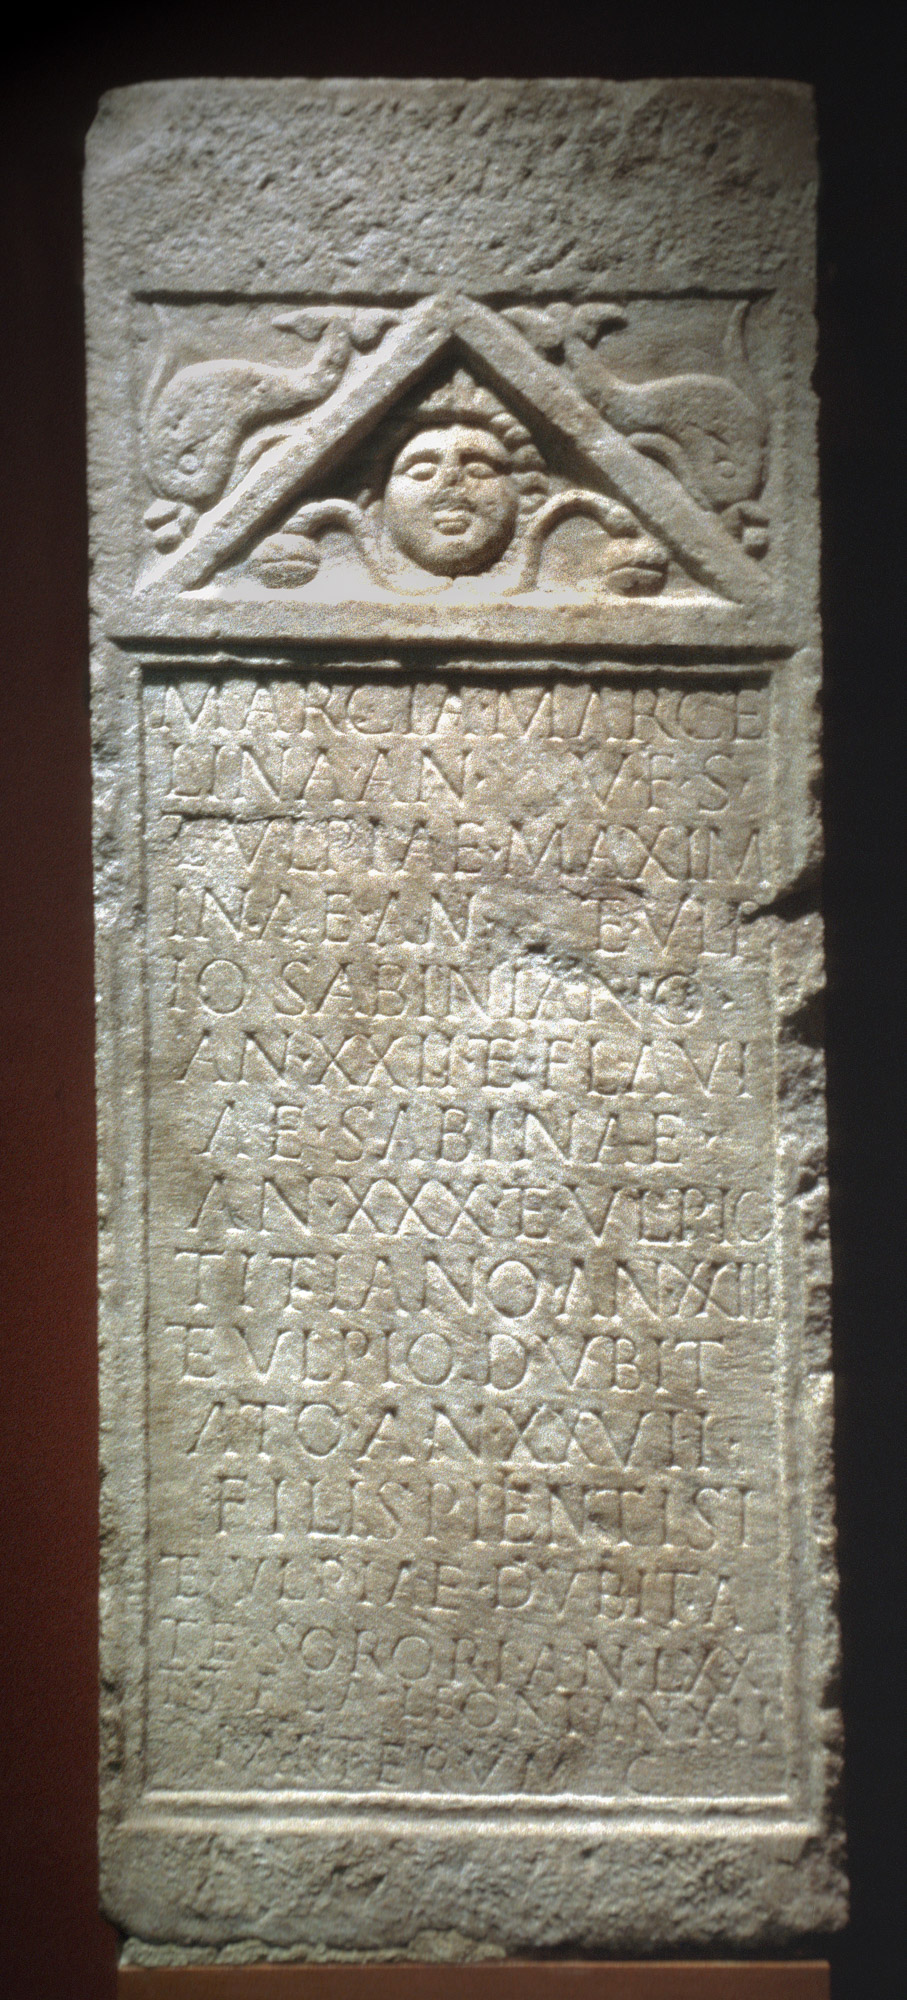 MARCIA·MARCE
LINA·AN· V·F·S·
E·VLPIAE·MAXIM
INAE·AN· E·VLP
IO SABINIANO·
AN·XXII·E·FLAVI
AE·SABINAE·
AN·XXX·E·VLPIO
TITIANO·AN·XIII
E·VLPIO·DVBIT
ATO·AN·XXVII·
FILIS·PIENTISI
E·VLPIAE·DVBITA
TE·SORORI·AN·LXX